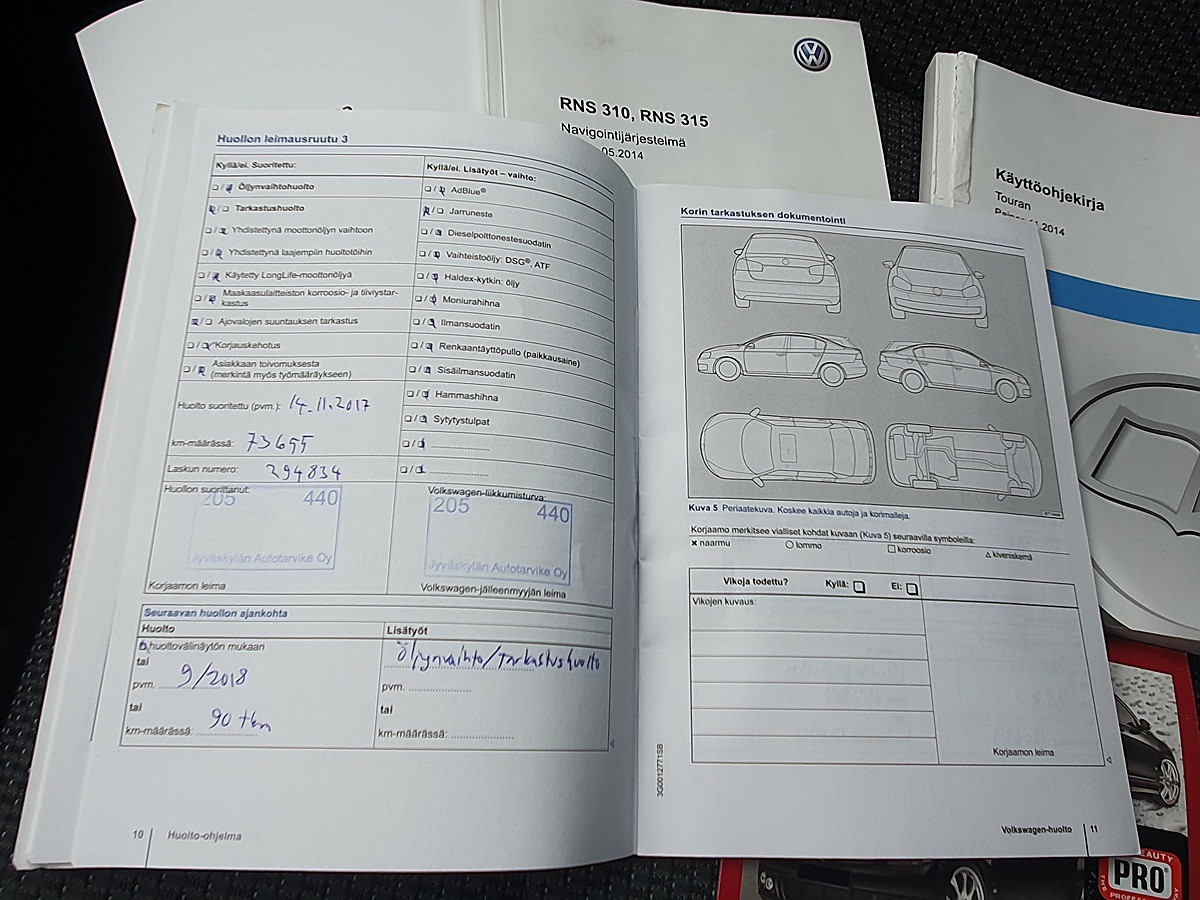 RNS 310, RNS 315
Navigointijärjestelmä
05.2014
Käyttöohjekirja
Touran
11.2014
Huollon leimausruutu 3
Kyllä/ei. Suoritettu:
Öljynvaihtohuolto
Tarkastushuolto
Yhdistettynä moottoriöljyn vaihtoon
Yhdistettynä laajempiin huoltotöihin
Käytetty LongLife-moottoriöljyä
Maakaasulaitteiston korroosio- ja tiiviystar-
kastus
Ajovalojen suuntauksen tarkastus
Korjauskehotus
Asiakkaan toivomuksesta
(merkintä myös työmääräykseen)
Kyllä/ei. Lisätyöt – vaihto:
AdBlue®
Jarruneste
Dieselpolttonestesuodatin
Vaihteistoöljy: DSG®, ATF
Haldex-kytkin: öljy
Moniurahihna
Ilmansuodatin
Renkaantäyttöpullo (paikkausaine)
Sisäilmansuodatin
Hammashihna
Sytytystulpat
Huolto suoritettu (pvm.): 14.11.2017
km-määrässä: 73695
Laskun numero: 294834
Huollon suorittanut:
205 440
Jyväskylän Autotarvike Oy
Korjaamon leima
Volkswagen-liikkumisturva:
205 440
Jyväskylän Autotarvike Oy
Volkswagen-jälleenmyyjän leima
Seuraavan huollon ajankohta
Huolto
huoltovälinäytön mukaan
tai
pvm. 9/2018
tai
km-määrässä: 90 tkm
Lisätyöt
Öljynvaihto/Tarkastushuolto
pvm.
tai
km-määrässä:
10 Huolto-ohjelma
Korin tarkastuksen dokumentointi
Kuva 5 Periaatekuva. Koskee kaikkia autoja ja korimalleja.
Korjaamo merkitsee vialliset kohdat kuvaan (Kuva 5) seuraavilla symboleilla:
× naarmu ○ lommo □ korroosio △ kiveniskemä
Vikoja todettu? Kyllä: Ei:
Vikojen kuvaus:
Korjaamon leima
3G0012771SB
Volkswagen-huolto 11
PRO